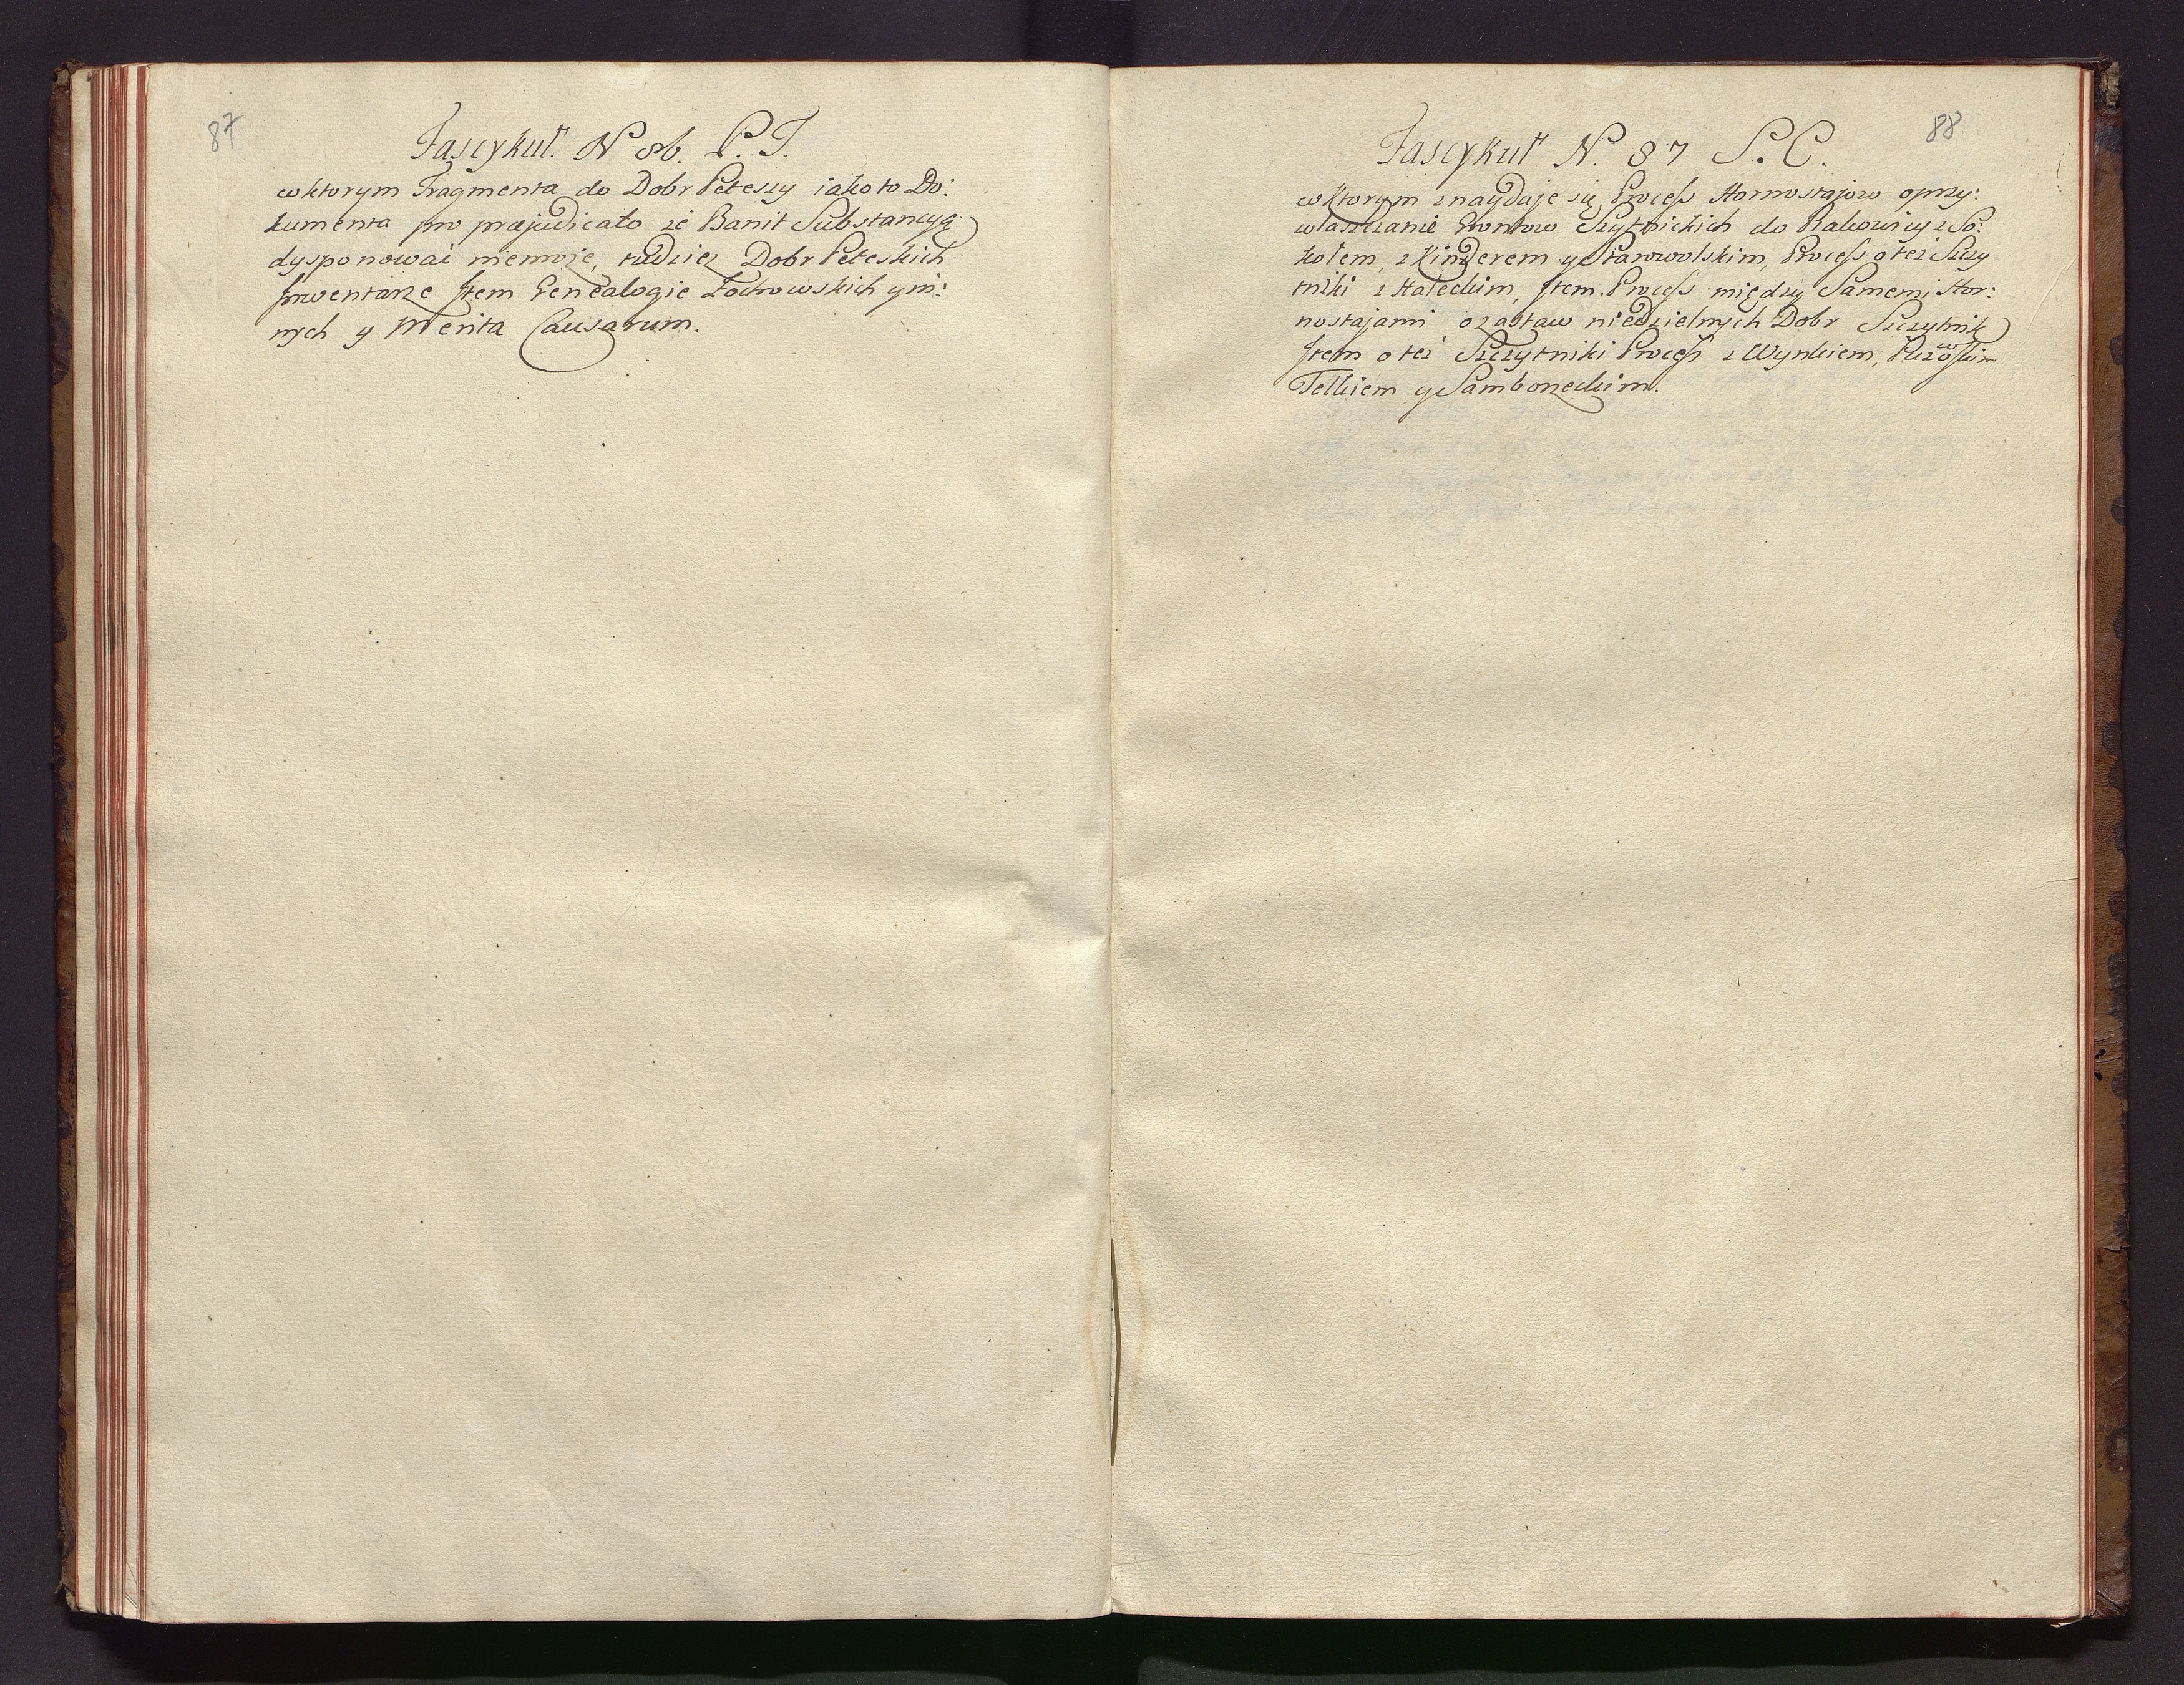 87
Fascykuł. N 86. P. T.
w ktorym Fragmenta do Dobr Peteszy iako to Do:
kumenta pro præjudicato że Banit Substancyą
dysponować niemoże, tudziez Dobr Peteskich
Inwentarze Item Genealogie Zochowskich y in:
nych y Merita Causarum.
88
Fascykuł N. 87 S. C.
w ktorym znayduje się Process Hornostajow o przy:
własczanie Grontow Szytnickich do Rakowicy z So:
kołem, z Kinderem y Starowolskim, Process o też Szczy
tniki z Haleckim, Item Process między Samemi Hor:
nostajami o zastaw niedzielnych Dobr Szczytnik
Item o też Szczytniki Process z Wynkiem,
Telkiem y Samboneckim.